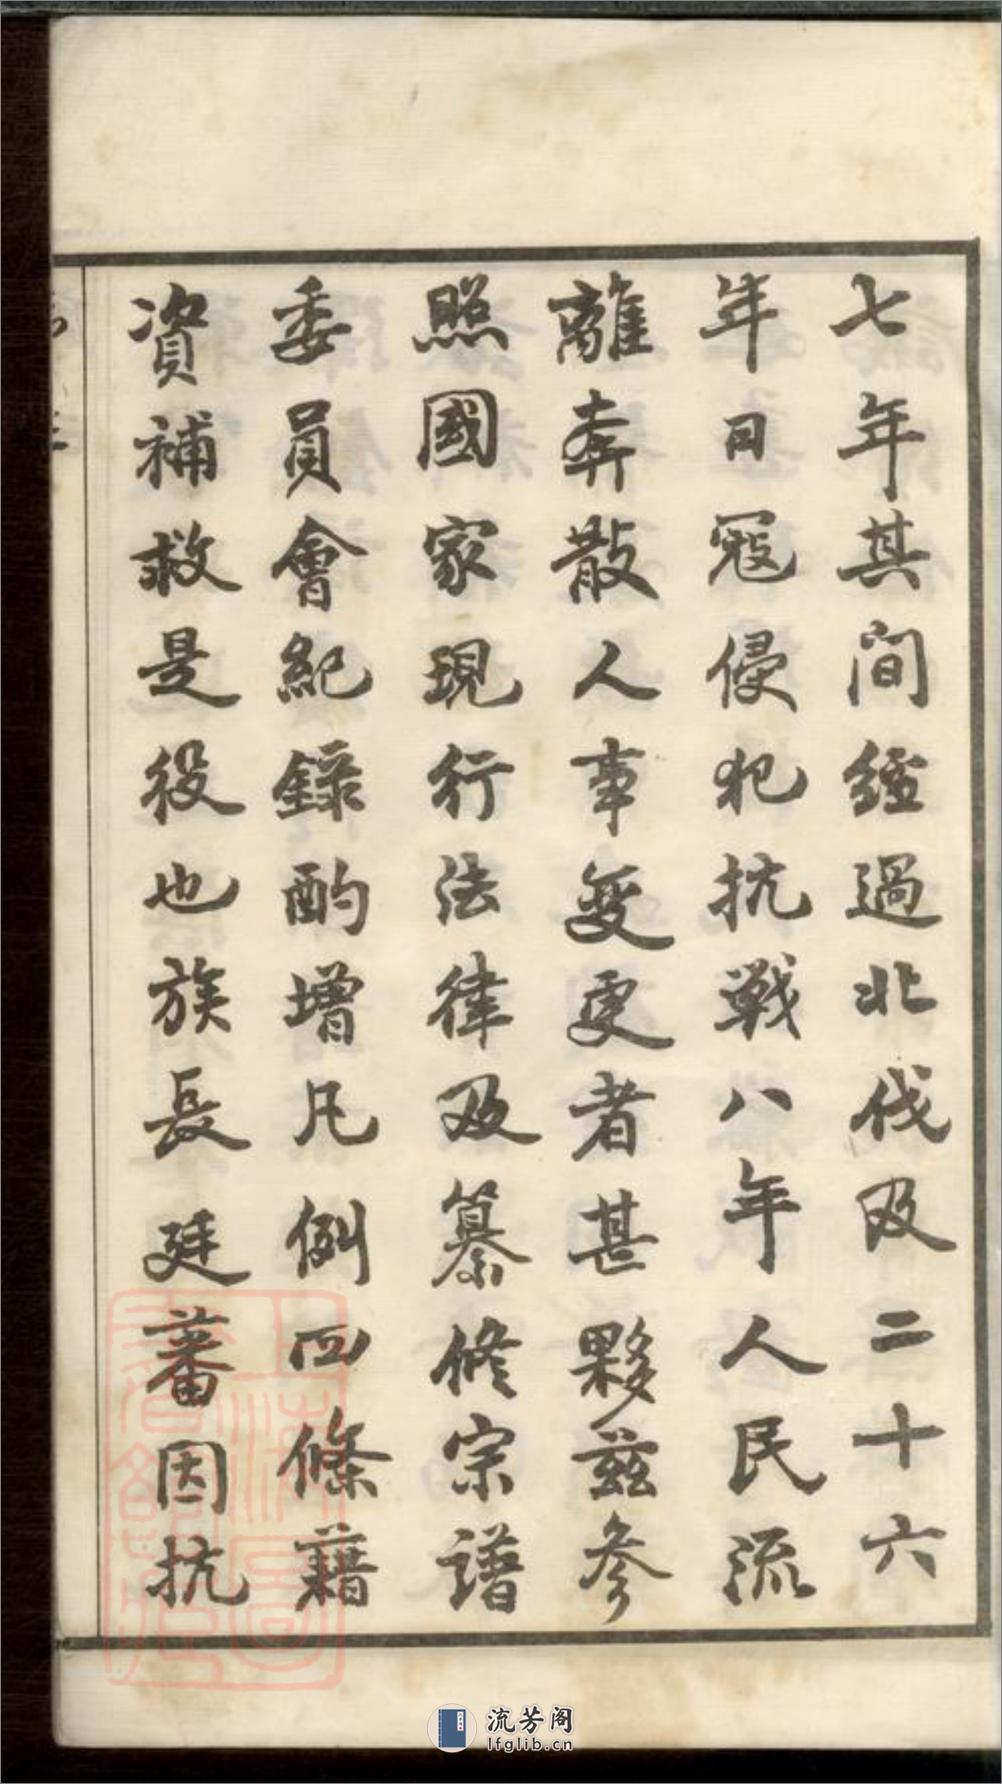 七年其间經過北伐及二十六
年日寇侵犯抗戰八年人民流
離奔散人事變更者甚夥茲參
照國家現行法律及纂修宗譜
委員會紀錄酌增凡例四條藉
資補救是役也族長廷蕃因抗
流芳阁
lfglib.cn